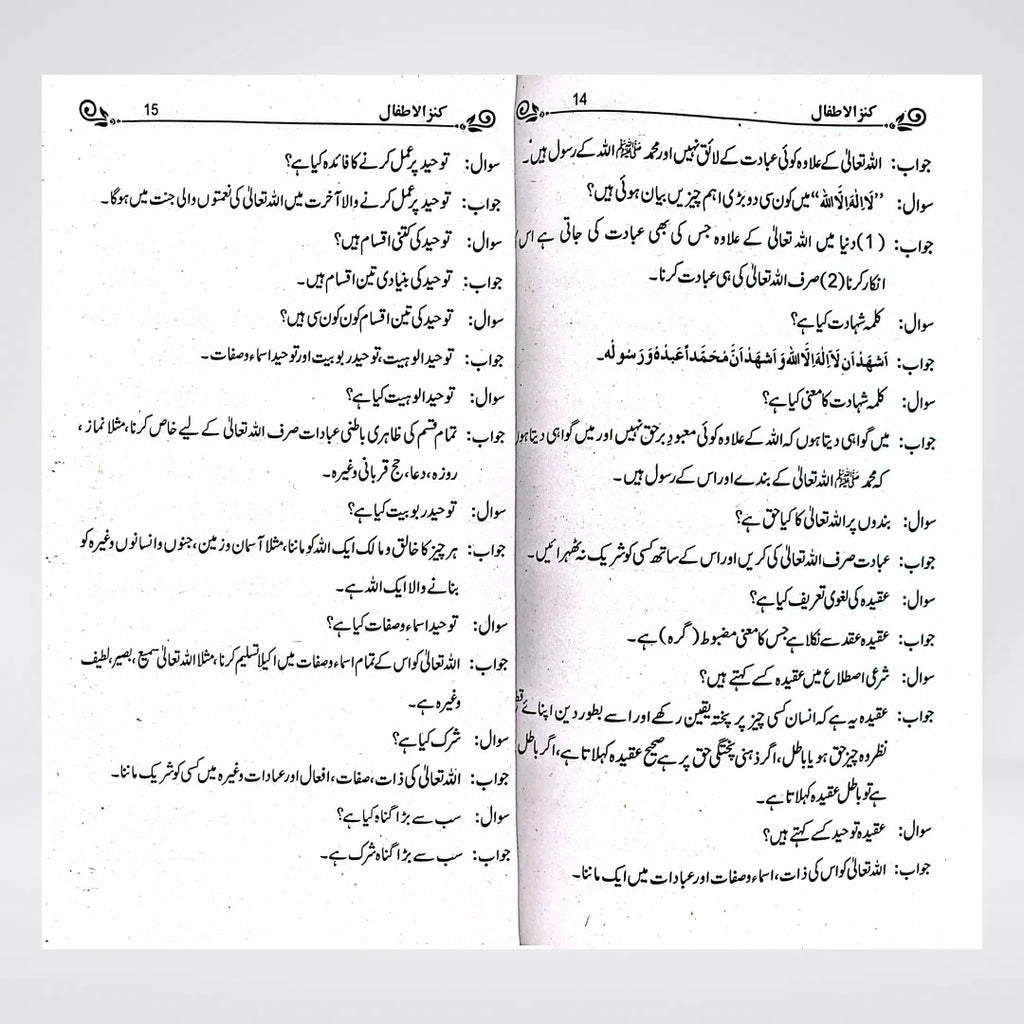 کنز الاطفال 14
جواب: اللہ تعالیٰ کے علاوہ کوئی عبادت کے لائق نہیں اور محمد ﷺ اللہ کے رسول ہیں۔
سوال: ”لَا اِلٰهَ اِلَّا الله“ میں کون سی دو بڑی اہم چیزیں بیان ہوئی ہیں؟
جواب: (1) دنیا میں اللہ تعالیٰ کے علاوہ جس کی بھی عبادت کی جاتی ہے اس
انکار کرنا (2) صرف اللہ تعالیٰ کی ہی عبادت کرنا۔
سوال: کلمہ شہادت کیا ہے؟
جواب: اَشْهَدُ اَنْ لَآ اِلٰهَ اِلَّا الله وَ اَشْهَدُ اَنَّ مُحَمَّداً عَبْدُهُ وَ رَسُولُه۔
سوال: کلمہ شہادت کا معنی کیا ہے؟
جواب: میں گواہی دیتا ہوں کہ اللہ کے علاوہ کوئی معبودِ برحق نہیں اور میں گواہی دیتا ہوں
کہ محمد ﷺ اللہ تعالیٰ کے بندے اور اس کے رسول ہیں۔
سوال: بندوں پر اللہ تعالیٰ کا کیا حق ہے؟
جواب: عبادت صرف اللہ تعالیٰ کی کریں اور اس کے ساتھ کسی کو شریک نہ ٹھہرائیں۔
سوال: عقیدہ کی لغوی تعریف کیا ہے؟
جواب: عقیدہ عقد سے نکلا ہے جس کا معنی مضبوط (گرہ) ہے۔
سوال: شرعی اصطلاح میں عقیدہ کسے کہتے ہیں؟
جواب: عقیدہ یہ ہے کہ انسان کسی چیز پر پختہ یقین رکھے اور اسے بطور دین اپنائے
نظر وہ چیز حق ہو یا باطل، اگر ذہنی پختگی حق پر ہے صحیح عقیدہ کہلاتا ہے، اگر باطل
ہے تو باطل عقیدہ کہلاتا ہے۔
سوال: عقیدہ توحید کسے کہتے ہیں؟
جواب: اللہ تعالیٰ کو اس کی ذات، اسماء وصفات اور عبادات میں ایک ماننا۔
کنز الاطفال 15
سوال: توحید پر عمل کرنے کا فائدہ کیا ہے؟
جواب: توحید پر عمل کرنے والا آخرت میں اللہ تعالیٰ کی نعمتوں والی جنت میں ہوگا۔
سوال: توحید کی کتنی اقسام ہیں؟
جواب: توحید کی بنیادی تین اقسام ہیں۔
سوال: توحید کی تین اقسام کون کون سی ہیں؟
جواب: توحید الوہیت، توحید ربوبیت اور توحید اسماء وصفات۔
سوال: توحید الوہیت کیا ہے؟
جواب: تمام قسم کی ظاہری باطنی عبادات صرف اللہ تعالیٰ کے لیے خاص کرنا، مثلا نماز،
روزہ، دعا، حج قربانی وغیرہ۔
سوال: توحید ربوبیت کیا ہے؟
جواب: ہر چیز کا خالق و مالک ایک اللہ کو ماننا، مثلا آسمان و زمین، جنوں و انسانوں وغیرہ کو
بنانے والا ایک اللہ ہے۔
سوال: توحید اسماء وصفات کیا ہے؟
جواب: اللہ تعالیٰ کو اس کے تمام اسماء وصفات میں اکیلا تسلیم کرنا، مثلا اللہ تعالیٰ سمیع، بصیر، لطیف
وغیرہ ہے۔
سوال: شرک کیا ہے؟
جواب: اللہ تعالیٰ کی ذات، صفات، افعال اور عبادات وغیرہ میں کسی کو شریک ماننا۔
سوال: سب سے بڑا گناہ کیا ہے؟
جواب: سب سے بڑا گناہ شرک ہے۔